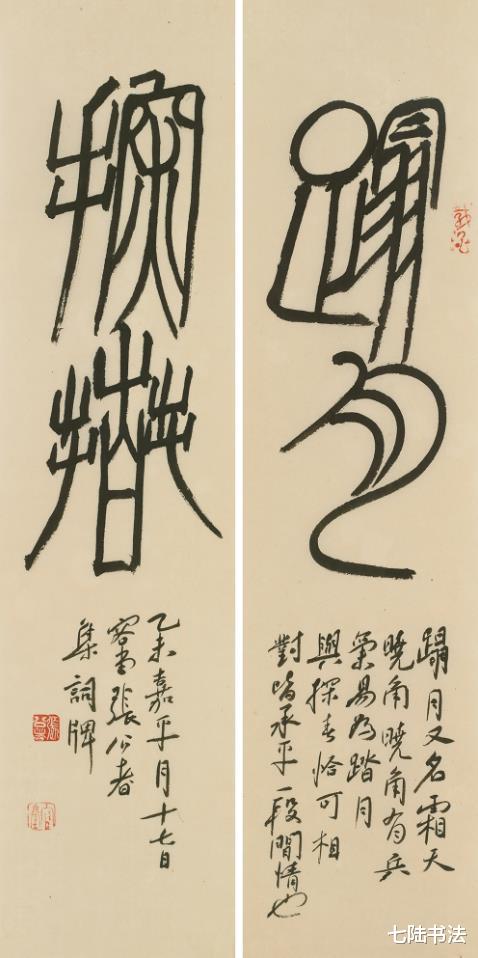 蹋月
蹋月又名霜天
曉角曉角有兵
氣易為踏月
與探春恰可相
對皆承平一段閒情也
探春
乙未嘉平月十七日
容堂張公者
集詞牌
七陆书法